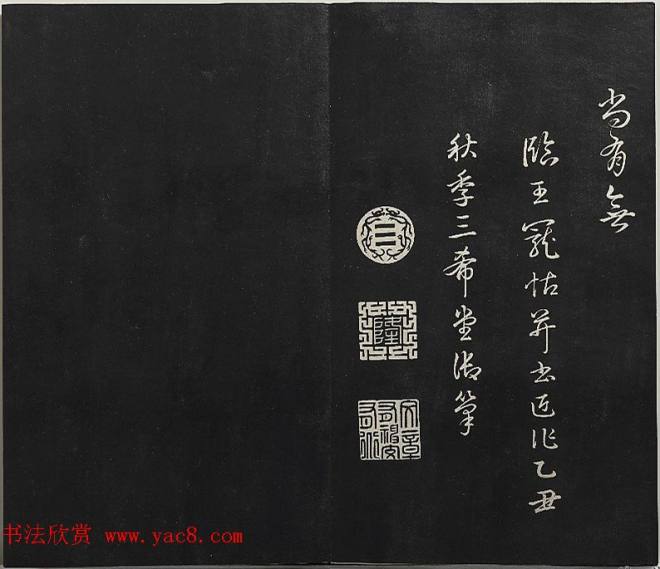 尚有無
臨王寵帖并書近作乙丑
秋季三希堂御筆
☰
隆
书法欣赏 www.yac8.com